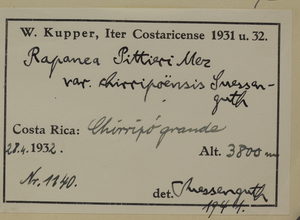 W. Kupper, Iter Costaricense 1931 u. 32.
Rapanea Pittieri Mez
var. chirripoënsis Suessen-
guth
Costa Rica: Chirripó grande
28.4.1932. Alt. 3800 m
Nr. 1340.
det. Suessenguth
1941.